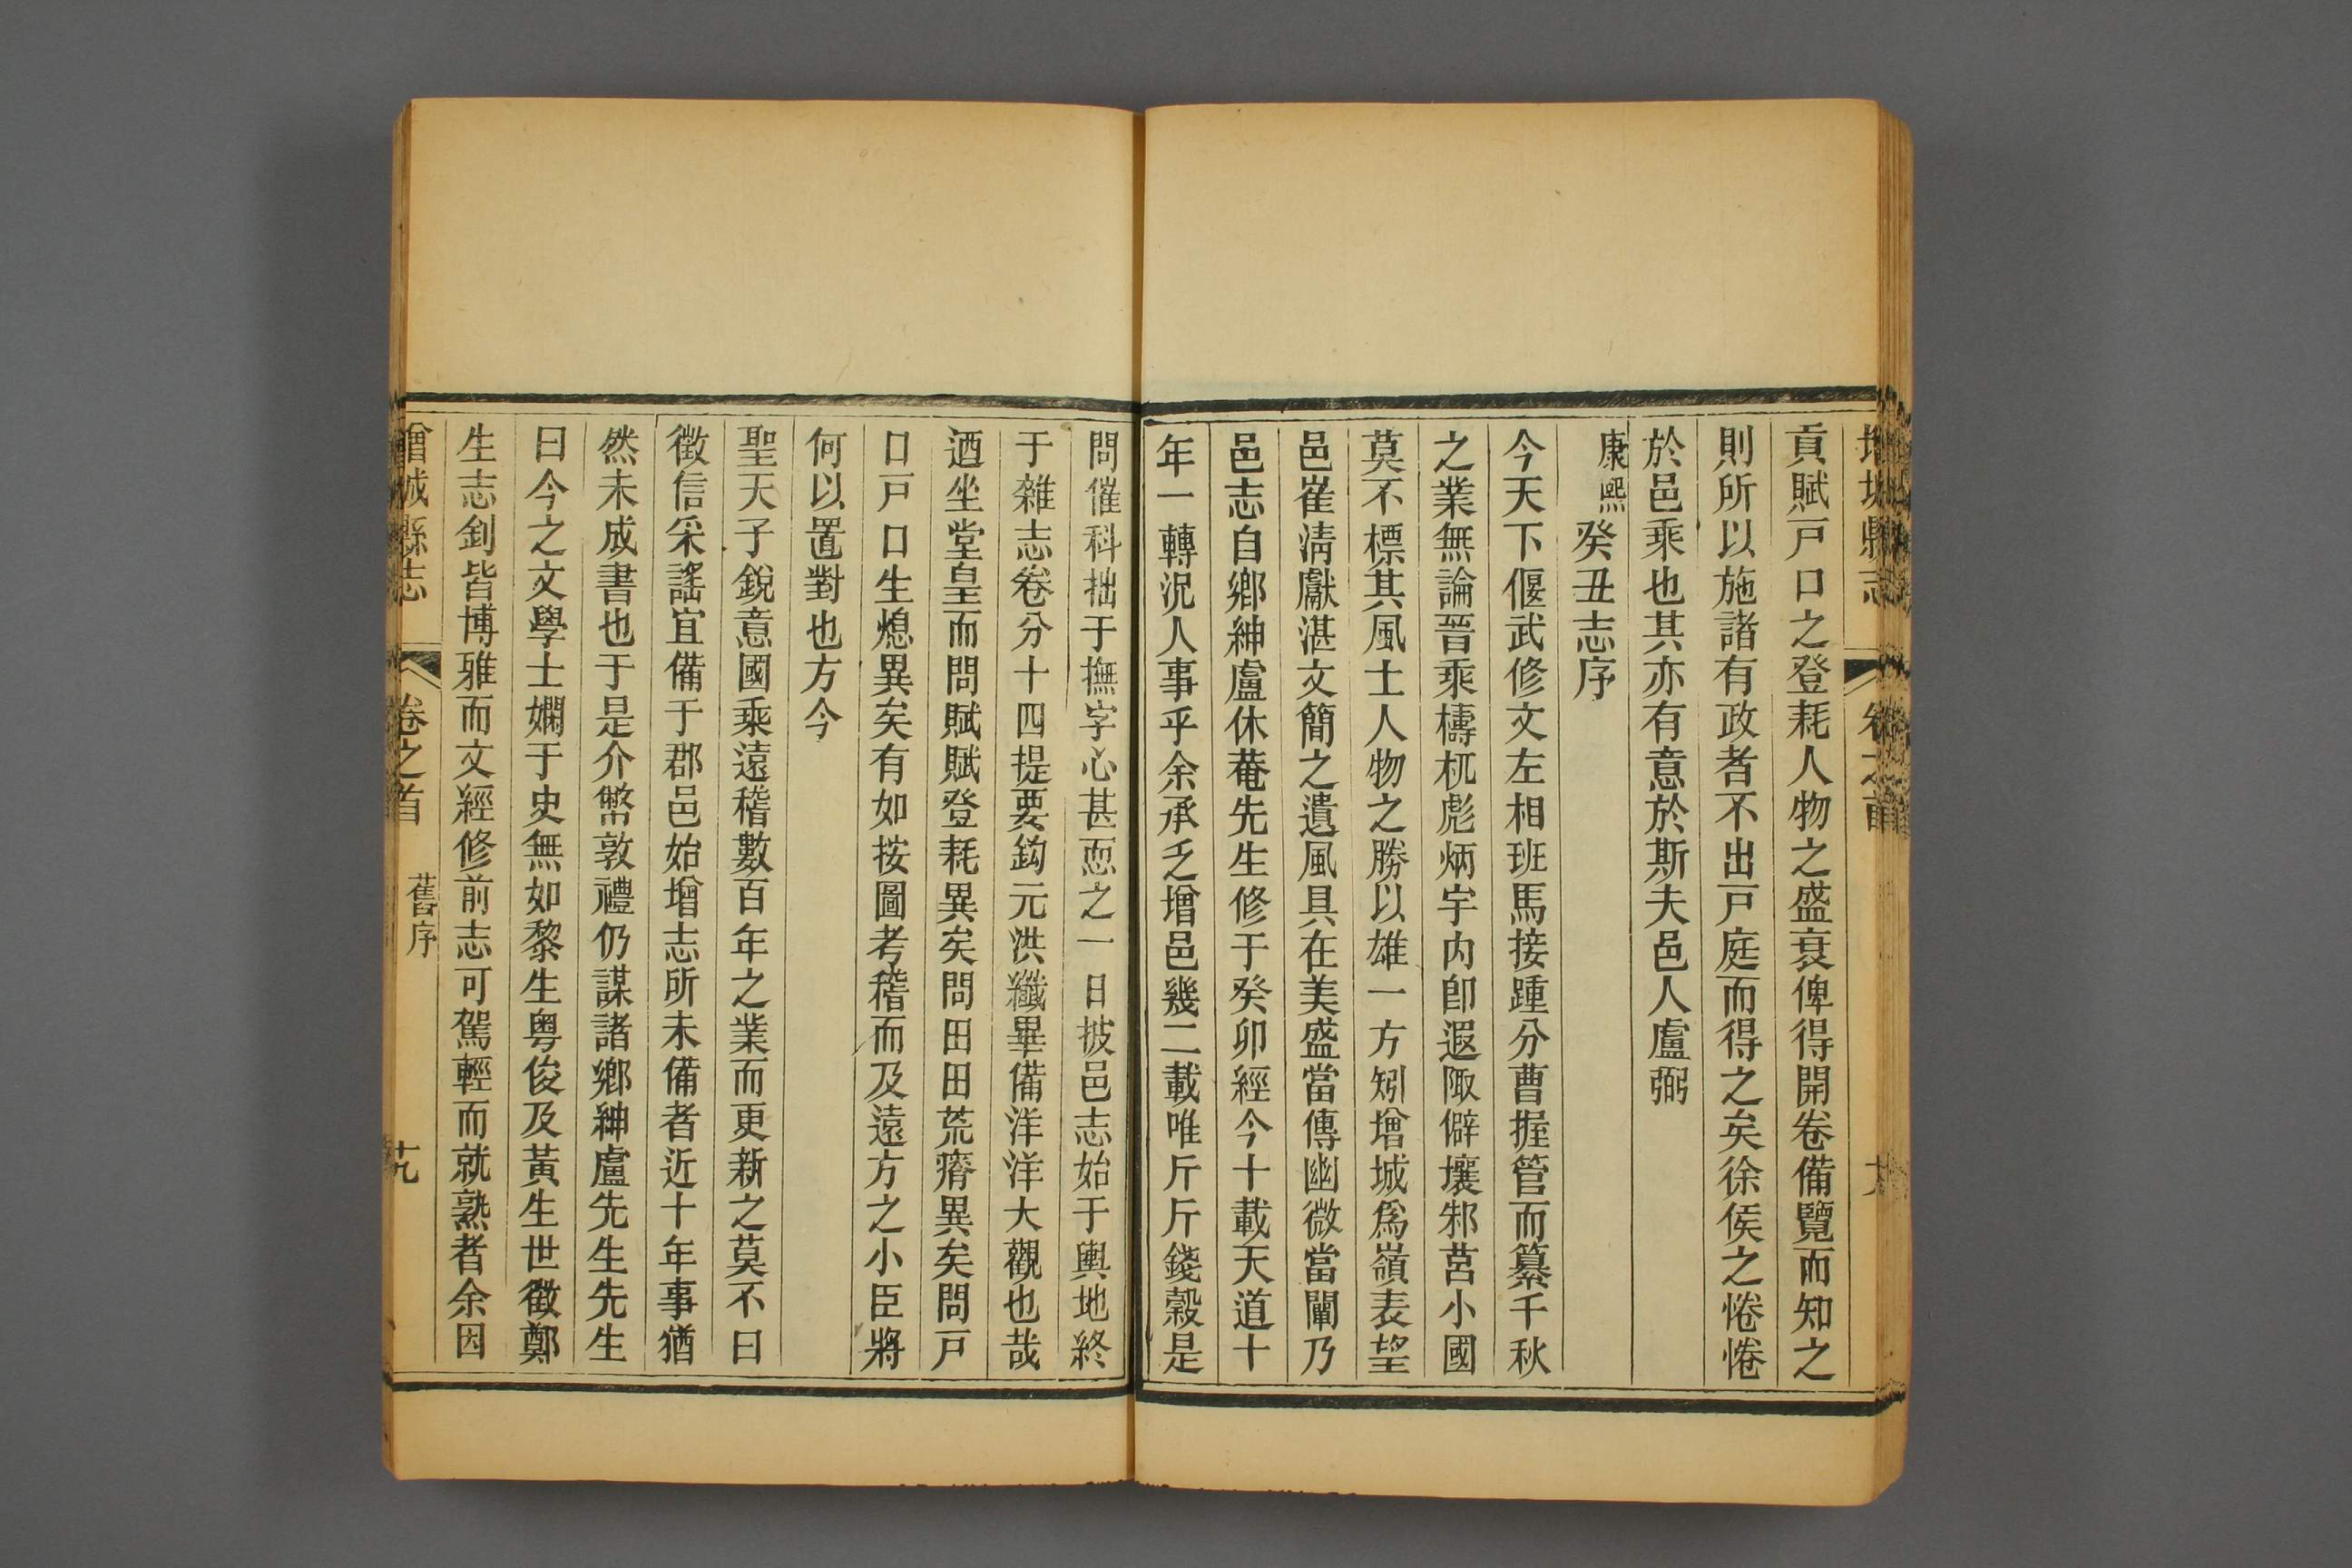 增城縣志
卷之首
貢賦戸口之登耗人物之盛衰俾得開卷備覽而知之
則所以施諸有政者不出戸庭而得之矣徐侯之惓惓
於邑乘也其亦有意於斯夫邑人盧弼
康熙癸丑志序
今天下偃武修文左相班馬接踵分曹握管而纂千秋
之業無論晉乘檮杌彪炳宇内卽遐陬僻壤邾莒小國
莫不標其風土人物之勝以雄一方矧增城爲嶺表望
邑崔淸獻湛文簡之遺風具在美盛當傳幽微當闡乃
邑志自鄉紳盧休菴先生修于癸卯經今十載天道十
年一轉況人事乎余承乏增邑幾二載唯斤斤錢穀是
問催科拙于撫字心甚恧之一日披邑志始于輿地終
于雜志卷分十四提要鈎元洪纖畢備洋洋大觀也哉
迺坐堂皇而問賦賦登耗異矣問田田荒瘠異矣問戸
口戸口生熄異矣有如按圖考稽而及遠方之小臣將
何以置對也方今
聖天子銳意國乘遠稽數百年之業而更新之莫不曰
徵信采謠宜備于郡邑始增志所未備者近十年事猶
然未成書也于是介幣敦禮仍謀諸鄉紳盧先生先生
曰今之文學士嫻于史無如黎生粤俊及黃生世徵鄭
生志釗皆博雅而文經修前志可駕輕而就熟者余因
增城縣志
卷之首
舊序
十九